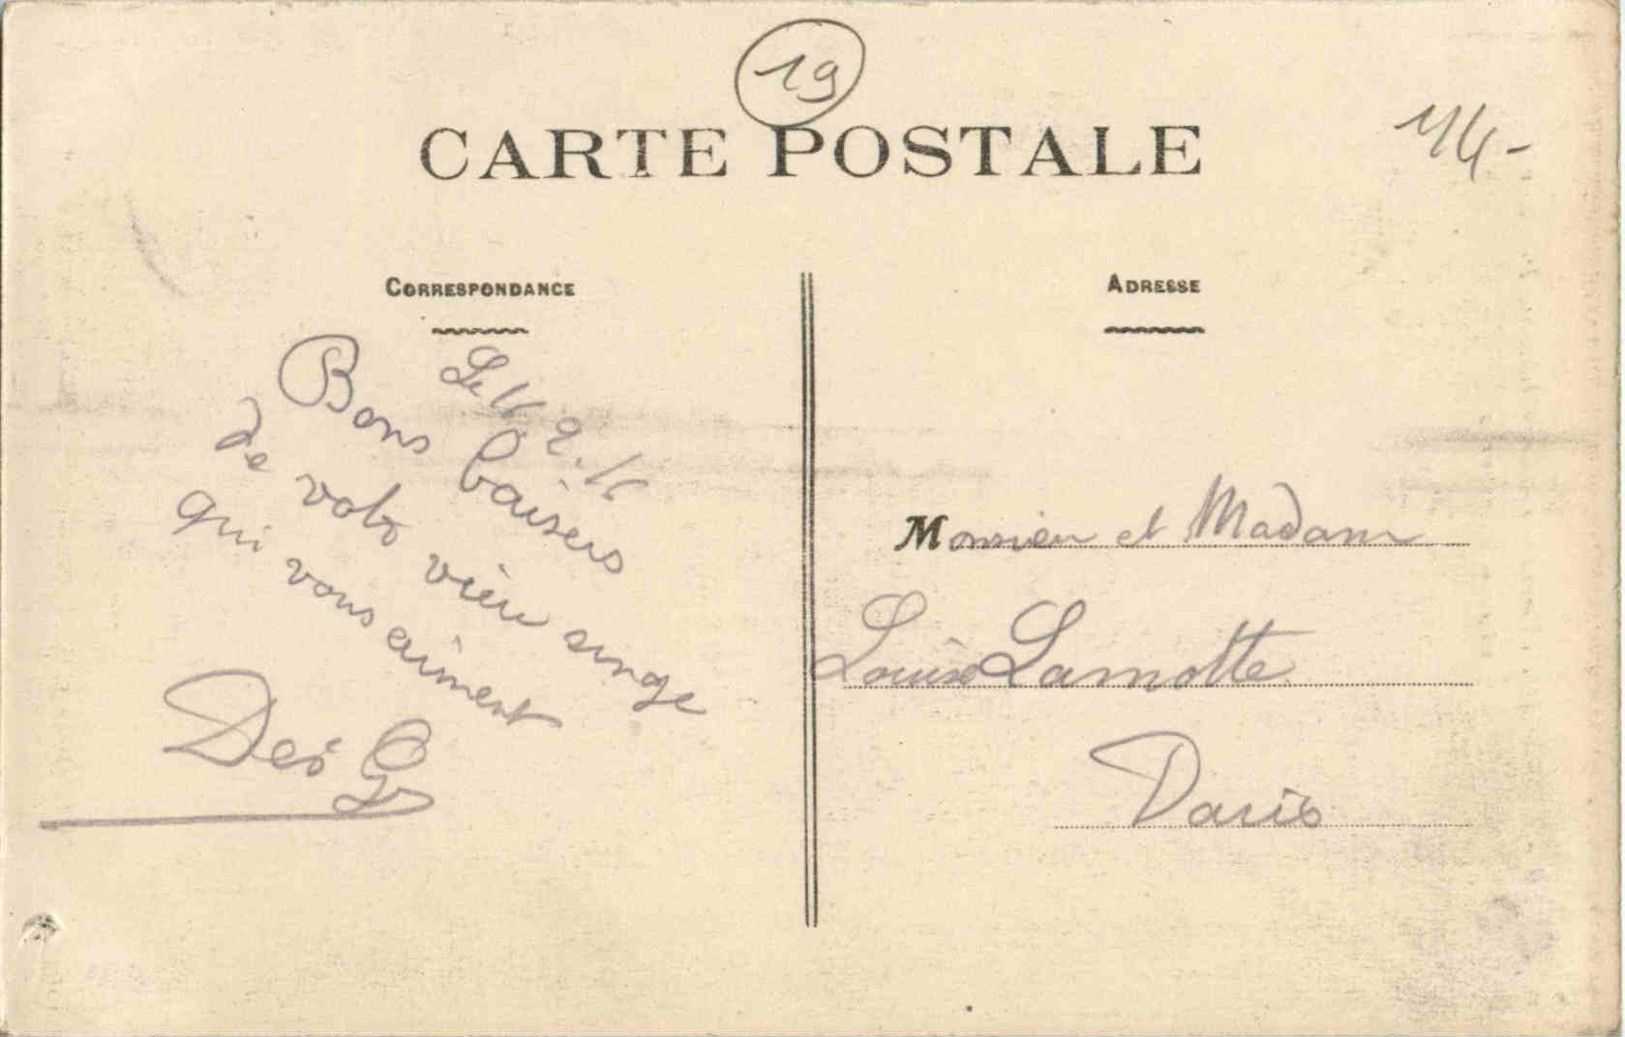 19
CARTE POSTALE
14-
CORRESPONDANCE
ADRESSE
Le 11. 2. 16
Bons baisers
de votr vieu singe
qui vous aiment
Dés G
Monsieu et Madam
Louise Lamotte
Paris